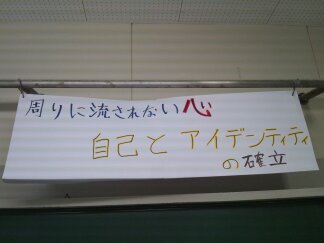 周りに流されない心
自己とアイデンティティ
の確立